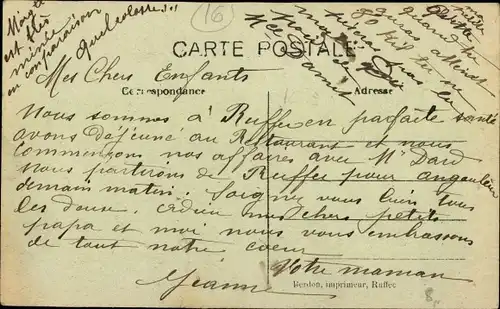 Moi
est très
mince
en comparaison
Quel colosse !!!
16
quand tu
auras atteint
80 Kil tu ne
CARTE POSTALE
Mes Chers Enfants
Correspondance
Adresse
Nous sommes à Ruffec en parfaite santé
avons déjeuné au Restaurant et nous
commençons nos affaires avec Mr Dard
Nous partirons de Ruffec pour angoulême
demain matin. Soignez vous bien tous
les deux. adieu mes chers petits
papa et moi nous vous embrassons
de tout notre coeur
Votre maman
Jeanne
Berdon, imprimeur, Ruffec
8